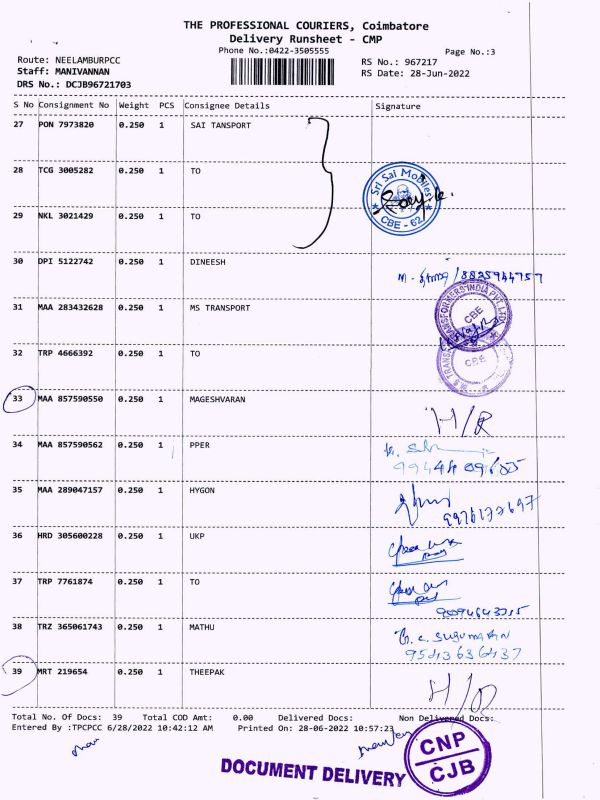 THE PROFESSIONAL COURIERS, Coimbatore
Delivery Runsheet - CMP
Phone No.:0422-3505555
Page No.:3
Route: NEELAMBURPCC
RS No.: 967217
Staff: MANIVANNAN
RS Date: 28-Jun-2022
DRS No.: DCJB96721703
S No Consignment No Weight PCS Consignee Details Signature
27 PON 7973820 0.250 1 SAI TANSPORT
28 TCG 3005282 0.250 1 TO
Sri Sai Mobiles
CBE - 62
29 NKL 3021429 0.250 1 TO
30 DPI 5122742 0.250 1 DINEESH
31 MAA 283432628 0.250 1 MS TRANSPORT
CBE
32 TRP 4666392 0.250 1 TO
CBE
33 MAA 857590550 0.250 1 MAGESHVARAN
H/R
34 MAA 857590562 0.250 1 PPER
35 MAA 289047157 0.250 1 HYGON
36 HRD 305600228 0.250 1 UKP
37 TRP 7761874 0.250 1 TO
38 TRZ 365061743 0.250 1 MATHU
9543636437
39 MRT 219654 0.250 1 THEEPAK
H/R
Total No. Of Docs: 39 Total COD Amt: 0.00 Delivered Docs: Non Delivered Docs:
Entered By :TPCPCC 6/28/2022 10:42:12 AM Printed On: 28-06-2022 10:57:23
DOCUMENT DELIVERY
CNP
CJB